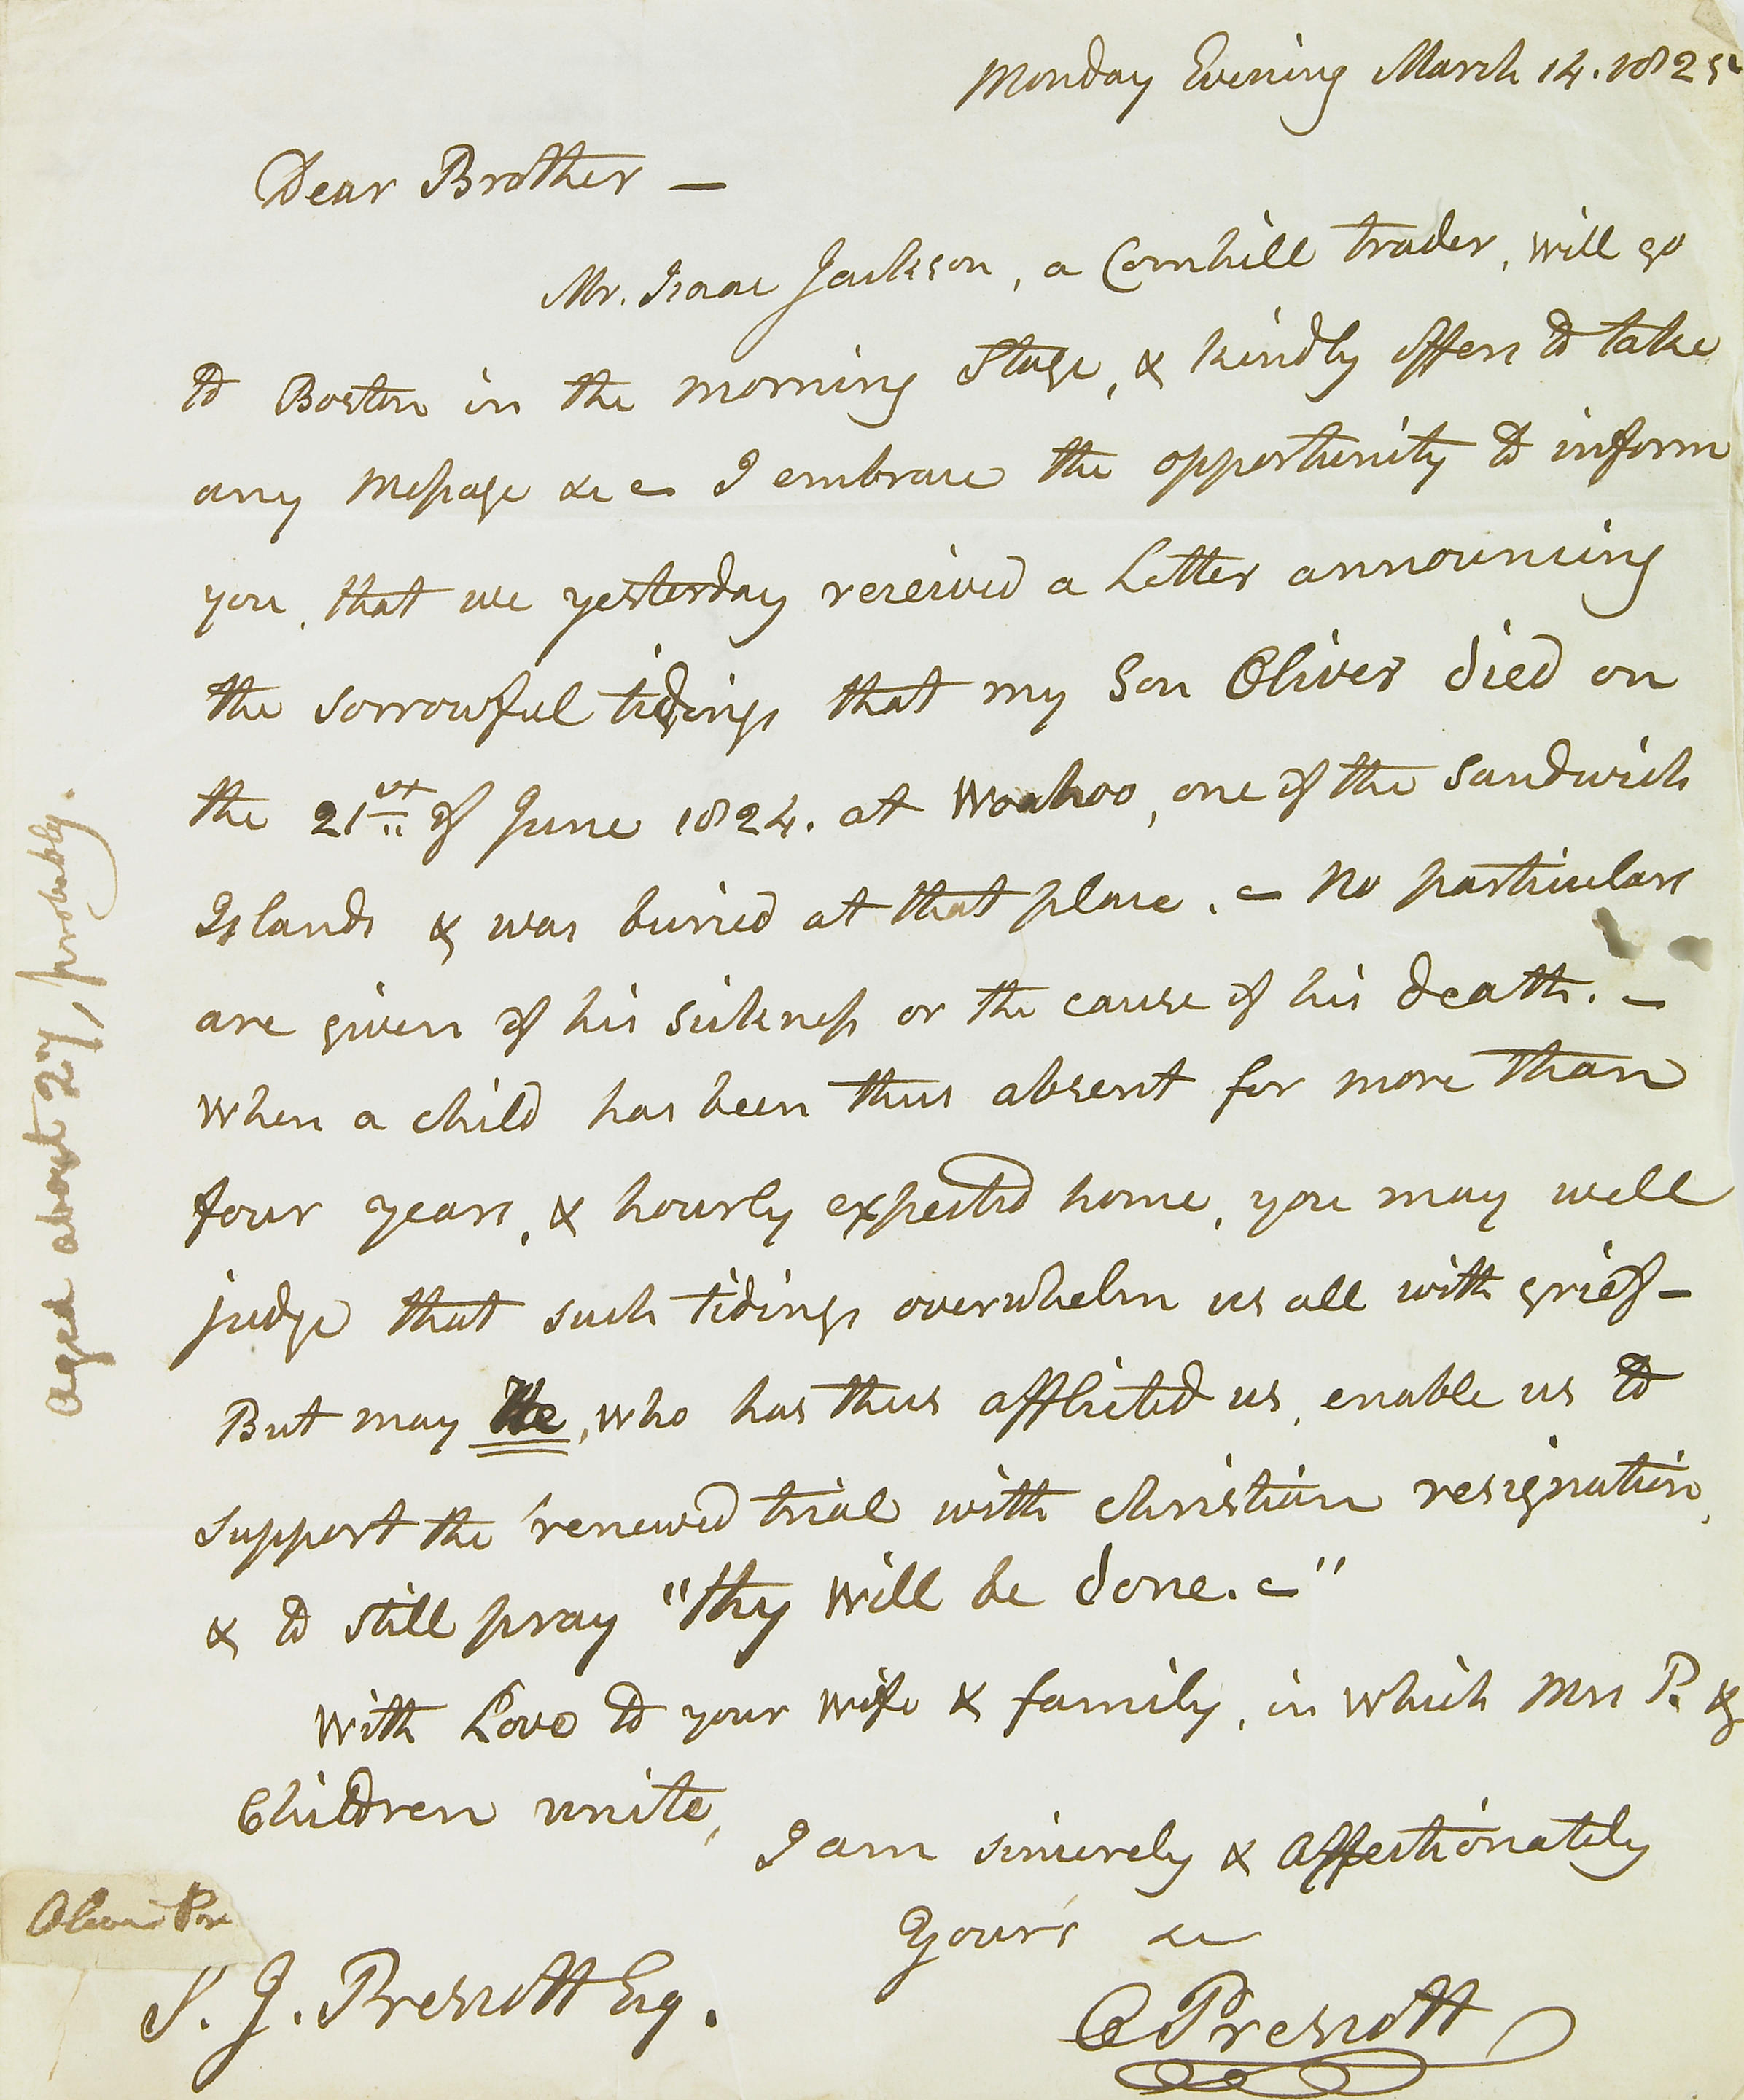 Monday Evening March 14. 1825
Dear Brother —
Mr. Isaac Jackson, a Cornhill trader, will go
to Boston in the morning Stage, & kindly offers to take
any Message &c — I embrace the opportunity to inform
you, that we yesterday received a Letter announcing
the sorrowful tidings that my Son Oliver died on
the 21st of June 1824. at Woahoo, one of the Sandwich
Islands & was buried at that place. — No particulars
are given of his sickness or the cause of his death. —
When a child has been thus absent for more than
four years, & hourly expected home, you may well
judge that such tidings overwhelm us all with grief —
But may He, who has thus afflicted us, enable us to
support the renewed trial with christian resignation,
& to still pray "thy will be done. —"
With Love to your wife & family, in which Mrs P. &
Children unite,
I am sincerely & Affectionately
Yours &c
O Prescott
S. J. Prescott Esq.
Oliver
aged about 27, probably.